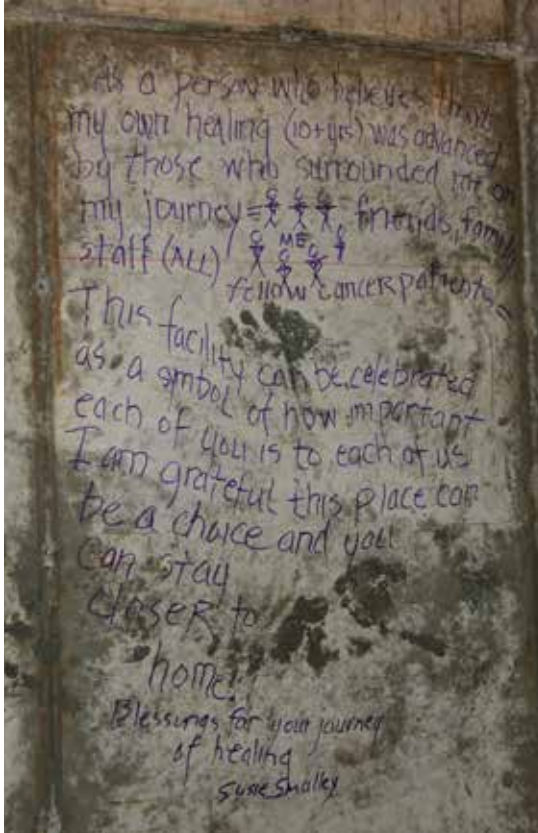 As a person who believes that
my own healing (10+yrs) was advanced
by those who surrounded me on
my journey = friends, family
staff (ALL) ME
fellow cancer patients =
This facility can be celebrated
as a symbol of how important
each of you is to each of us
I am grateful this place can
be a choice and you
can stay
closer to
home!
Blessings for your journey
of healing
Susie Smalley